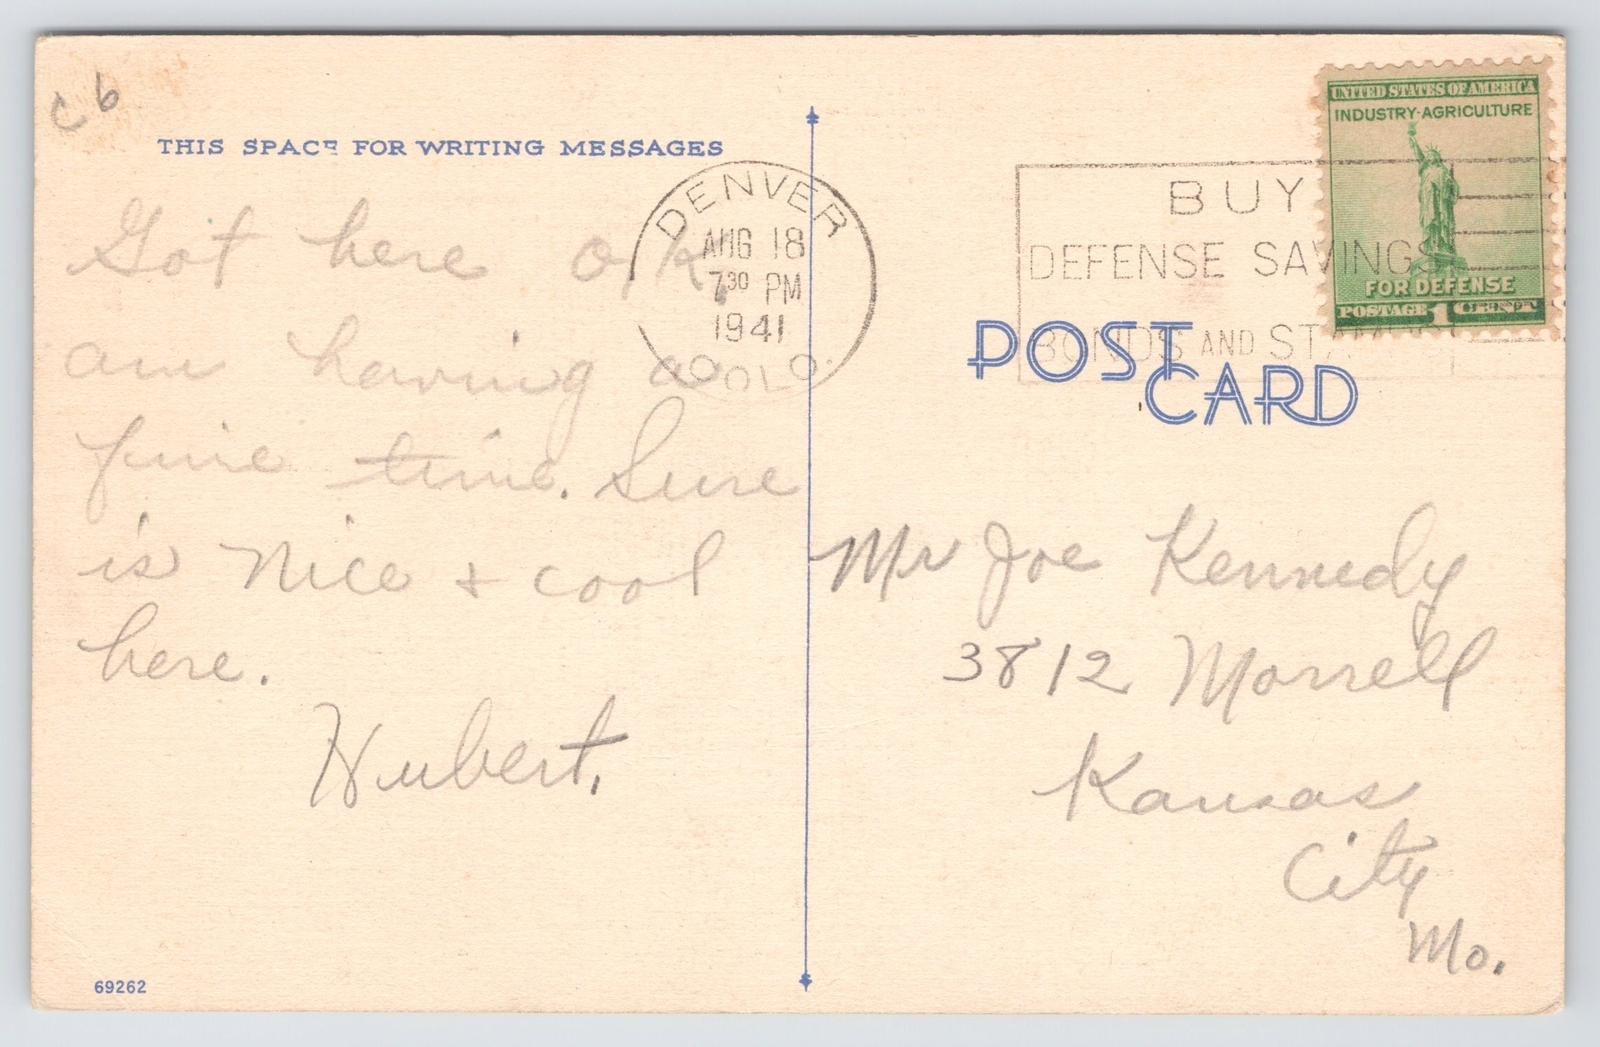 c b
THIS SPACE FOR WRITING MESSAGES
Got here o.k,
am having a
fine time. Sure
is nice & cool
here.
Hubert.
69262
DENVER
AUG 18
7 30 PM
1941
COLO.
BUY
DEFENSE SAVINGS
BONDS AND STAMPS
UNITED STATES OF AMERICA
INDUSTRY-AGRICULTURE
FOR DEFENSE
POSTAGE 1 CENT
POST
CARD
Mr Joe Kennedy
3812 Morrell
Kansas
City
Mo.